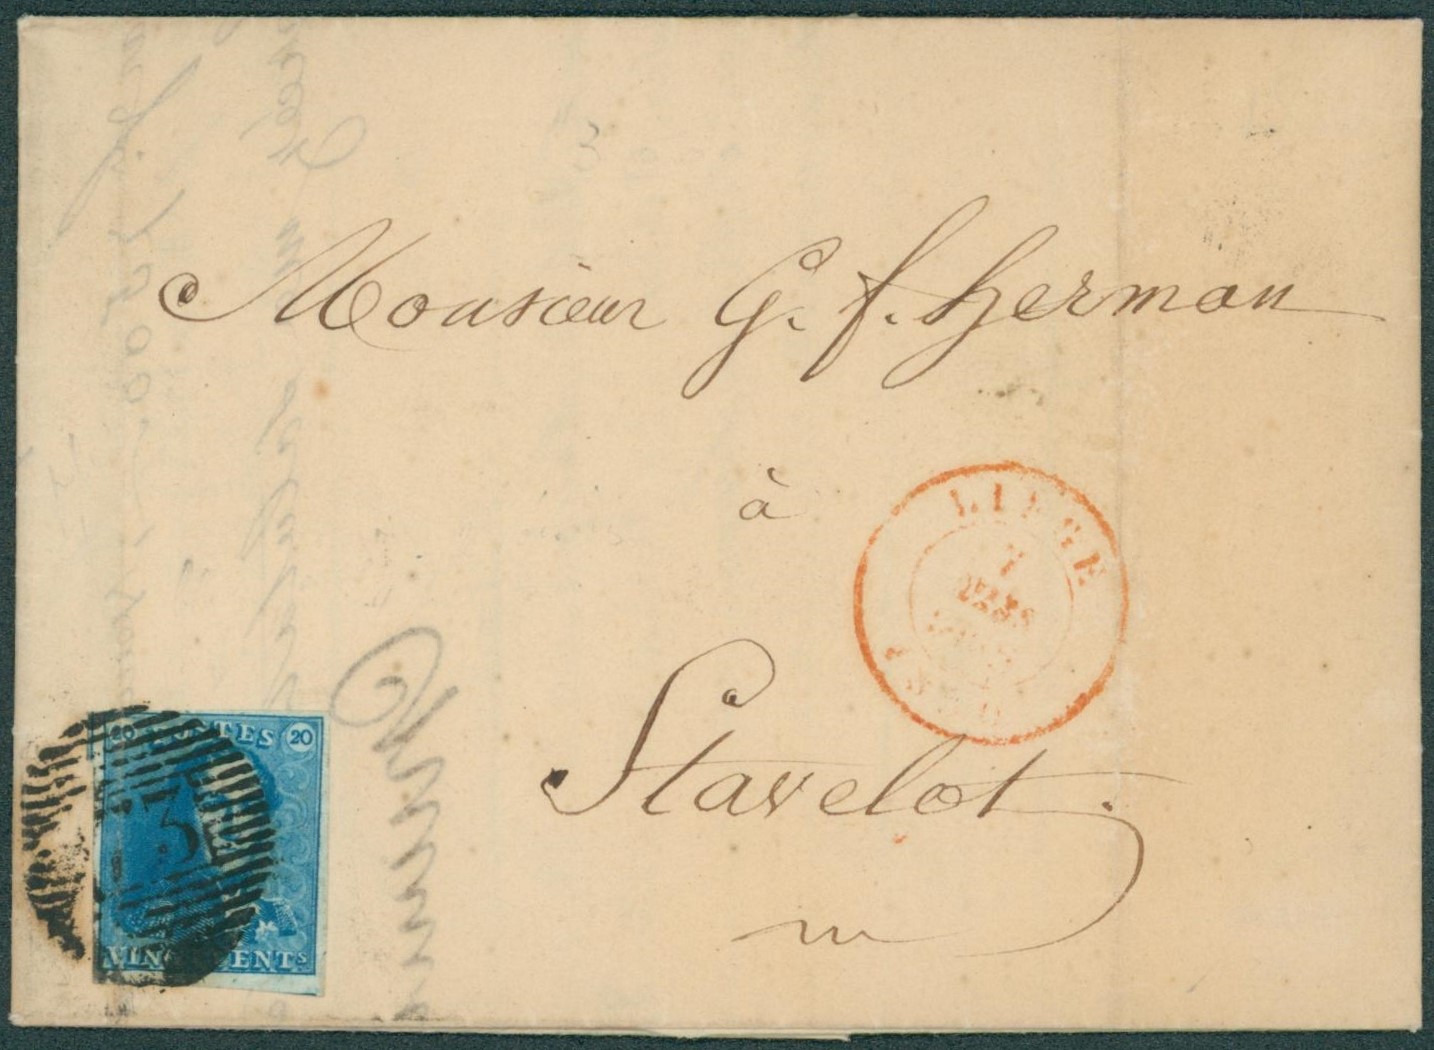 Monsieur G. f. Herman
à
LIEGE
7
MARS
Stavelot.
20 POSTES 20
73
VINGT CENTS